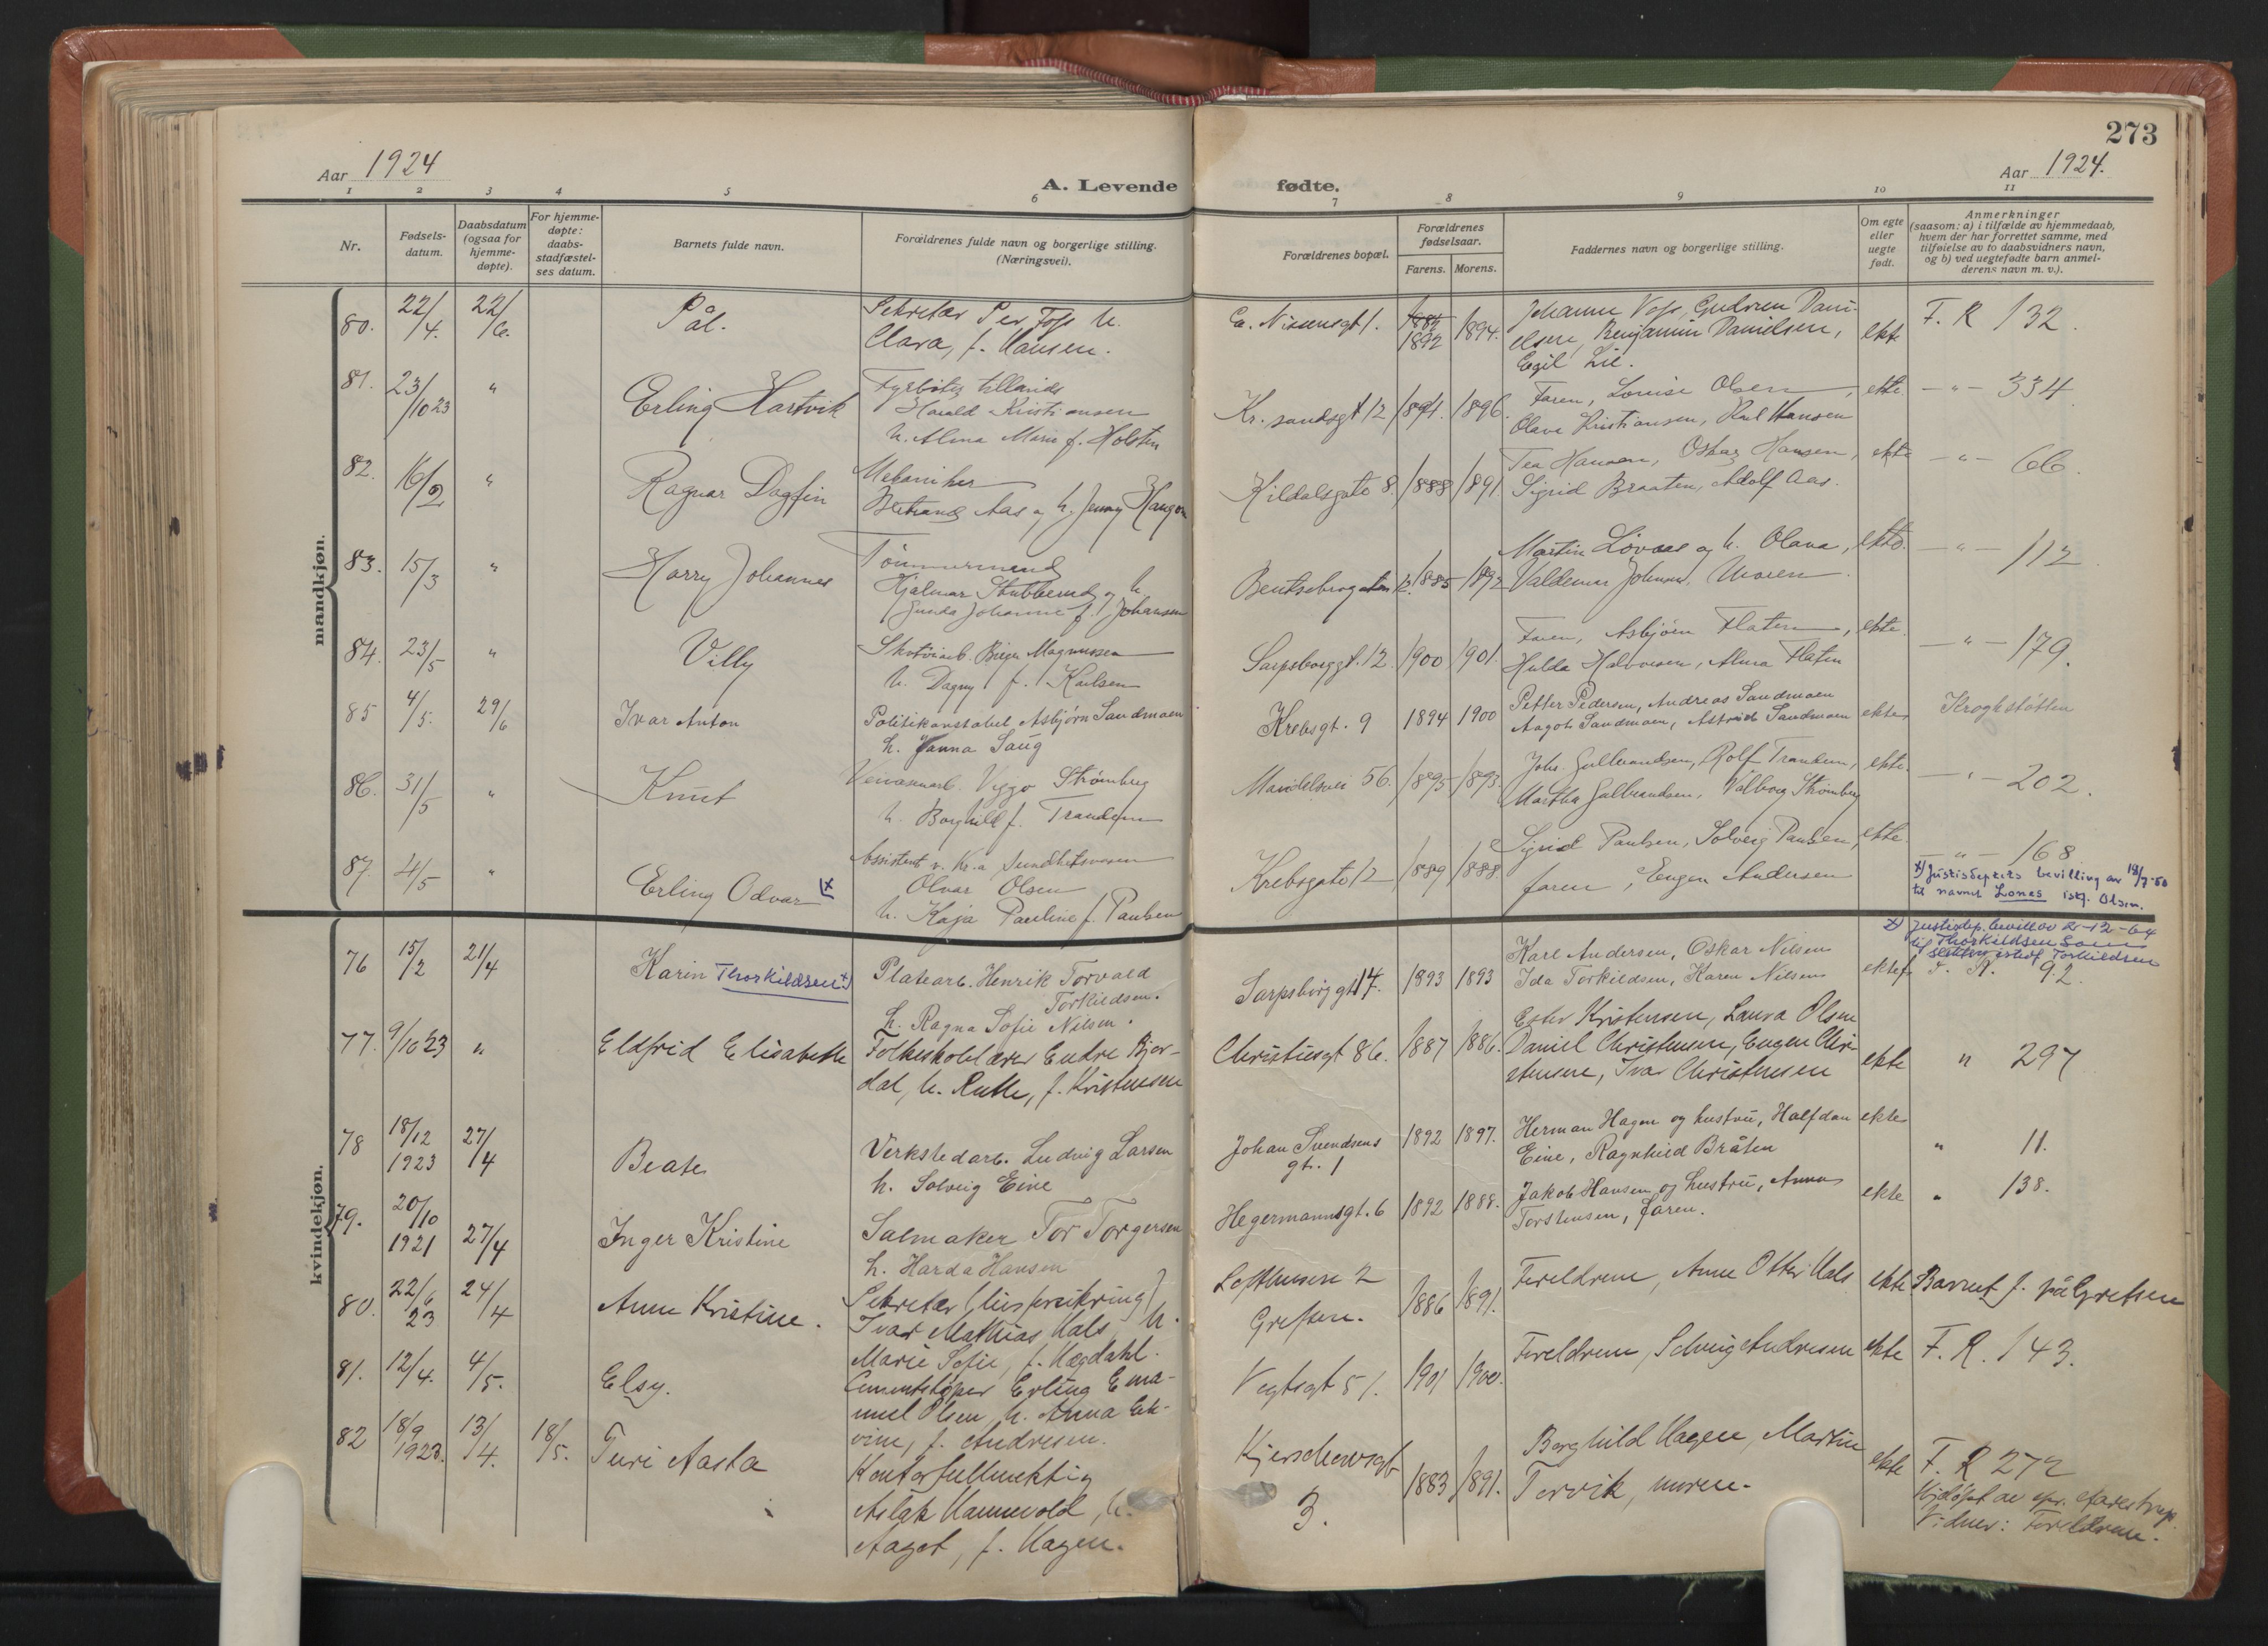 273
Aar 1924
Aar 1924.
A. Levende fødte.
1 2 3 4 5 6 7 8 9 10 11
Nr.
Fødsels-
datum.
Daabsdatum
(ogsaa for
hjemme-
døpte).
For hjemme-
døpte:
daabs-
stadfæstel-
ses datum.
Barnets fulde navn.
Forældrenes fulde navn og borgerlige stilling.
(Næringsvei).
Forældrenes bopæl.
Forældrenes
fødselsaar.
Farens. Morens.
Faddernes navn og borgerlige stilling.
Om egte
eller
uegte
født.
Anmerkninger
(saasom: a) i tilfælde av hjemmedaab,
hvem der har forrettet samme, med
tilføielse av to daabsvidners navn,
og b) ved uegtefødte barn anmel-
derens navn m. v.).
mandkjøn.
80. 22/4. 22/6. Pål.
Sekretær Per Foss h.
Clara, f. Hansen.
1. 1882 1892 1894.
Johanne Voss, Gudrun Dani-
elsen, Benjamin Danielsen,
Egil Lie.
ekte F. R 132.
81. 23/10 23 " Erling Hartvik
Fyrbøter tillands
Harald Kristiansen
h. Alma Marie f. Holsten
Kr. sandsgt 12 1891. 1896.
Faren, Lovise Olsen,
Olava Kristiansen, Karl Hansen
ekte - " - 334
82. 16/2 " Ragnar Dagfin
Mekaniker
Aas og h. Jenny Haugen
Kildalsgate 8. 1888 1891.
Tea Hansen, Oskar Hansen,
Sigrid Braaten, Adolf Aas.
ekte - " - 66.
83. 15/3 " Harry Johannes
Tømmermand
Hjalmar Stubberud og h
Gunda Johanne f. Johansen
Bentsebrogaten 12. 1885 1892
Martin Løvaas og h. Olava,
Valdemar Johnsen. Moren.
ekte. - " - 112
84. 23/5 " Villy
Skotøiarb. Birger Magnussen
h. Dagny f. Karlsen
Sarpsborggt. 12. 1900 1901.
Faren, Asbjørn Flaten,
Hulda Halvorsen, Alma Flaten
ekte. - " - 179.
85 4/5. 29/6 Ivar Anton
Politikonstabel Asbjørn Sandmoen
h. Janna Saug
Krebsgt. 9 1894 1900
Petter Pedersen, Andreas Sandmoen
Aagot Sandmoen, Astrid Sandmoen
ekte Kroghstøtten
86. 31/5 " Knut
Viggo Strømberg
h. Borghild f. Trandem
Maridalsvei 56. 1895 1893.
Johs. Gulbrandsen, Rolf Trandem,
Martha Gulbrandsen, Valborg Strømberg
ekte. - " - 202.
87. 4/5 " Erling Odvar x
Assistent v. Kr.a Sundhetsvesen
Olvar Olsen
h. Kaja Pauline f. Paulsen
Krebsgate 12 1889 1888.
Sigrid Paulsen, Solveig Paulsen,
faren, Eugen Andersen
ekte. - " - 168
x) Justisdeptets bevilling av 19/7-50
til navnet Lones istf. Olsen.
kvindekjøn.
x) Justisdep. bevill av 2-12-64
til Thorkildsen som
slektsnavn istedf Torkildsen
76 15/2 21/4 Karin Thorkildsen x)
Platearb. Henrik Torvald
Torkildsen.
h. Ragna Sofie Nilsen.
Sarpsborggt 17. 1893 1893
Karl Andersen, Oskar Nilsen
Ida Torkildsen, Karen Nilsen
ektef. F. R. 92.
77. 9/10 23 " Eldfrid Elisabeth
Folkeskolelærer Endre Bjor-
dal, h. Ruth, f. Kristensen
Christiesgt 86. 1887 1886.
Ester Kristensen, Laura Olsen
Daniel Christensen, Eugen Chri-
stensen, Ivar Christensen
ekte " 297
78 18/12 1923 27/4 Beate
Verkstedarb. Ludvig Larsen
h. Solveig Eine
Johan Svendsens
gt. 1 1892 1897.
Herman Hagen og hustru, Halfdan
Eine, Ragnhild Bråten
ekte " 11.
79. 20/10 1921 27/4 Inger Kristine
Salmaker Tor Torgersen
h. Harda Hansen
Hegermannsgt. 6 1892 1888.
Jakob Hansen og hustru, Anna
Torstensen, faren.
ekte " 138.
80. 22/6 23 24/4 Anne Kristine.
Sekretær (livsforsikring)
Ivar Mathias Hals h.
Marie Sofie, f. Hægdahl.
Lofthusvn 2
Grefsen. 1886 1891.
Foreldrene, Anne Otter Hals
ekte Barnet f. på Grefsen
81. 12/4. 4/5. Elsy.
Cementstøper Erling Ema-
nuel Olsen h. Anna Ek-
vine, f. Andresen.
Vogtsgt 51. 1901 1900.
Foreldrene, Solveig Andresen
ekte F. R. 143.
82 18/9 1923. 13/4. 18/5. Turi Aasta
Kontorfullmektig
Aslak Hannevold, h.
Aagot, f. Hagen.
Kjerschowsgt
3. 1883 1891.
Borghild Hagen, Martin
Torvik, moren.
ekte F. R 272
Hjdøpt av spr. Farestrup.
Vidner: Foreldrene.